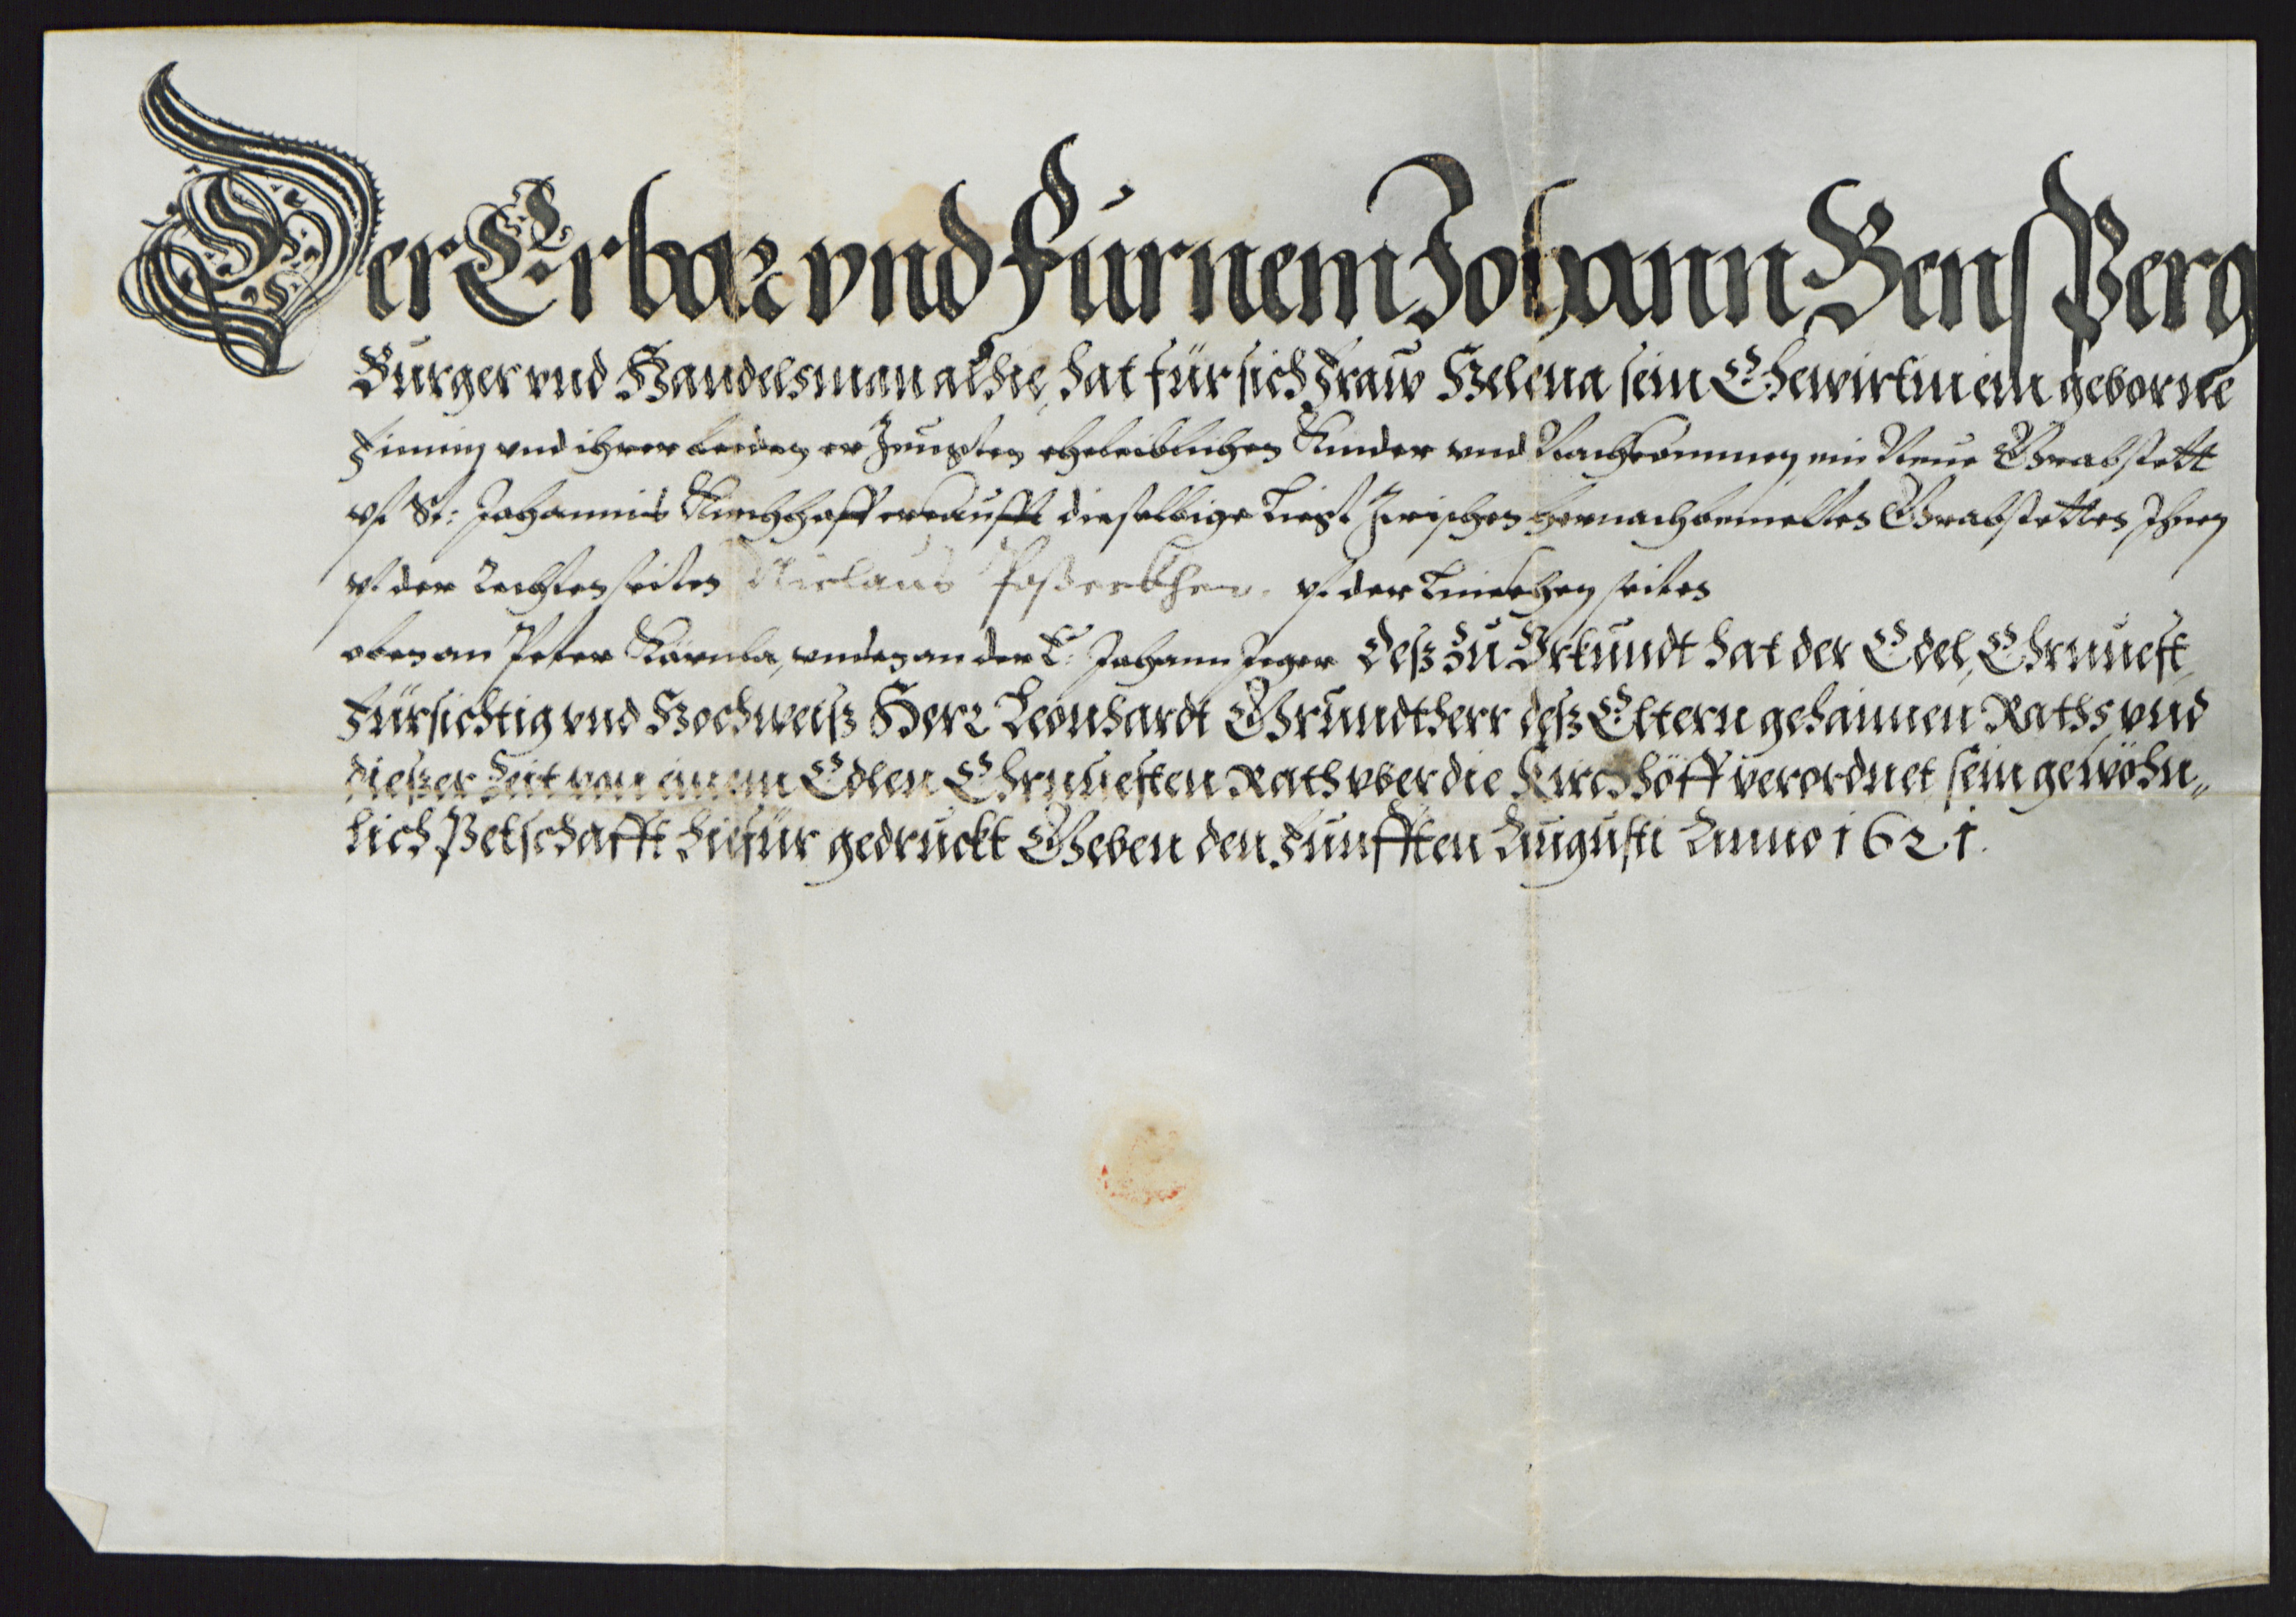 Der Erbar vnd Fürnem Johann Hensperg
Burger vnd Handelsman alhie, hat für sich Fraw Helena sein Ehewirtin ein geborne
vnd ihrer beeden erzeugten eheleiblichen Kinder vnd Nachkommen, ein Neue Grabstett
vf St: Johannis Kirchhoff erkaufft dieselbige Liegt Zwischen hernachbemelten Grabstetten, Ihnen
vf der Rechten seiten Niclaus vf der Linckhen seiten
oben an Peter vnden an der E: Johann Jeger Deß zu Vrkundt hat der Edel, Ehrnuest,
Fürsichtig vnd Hochweiß Herr Leonhardt Grundtherr deß Eltern gehaimen Raths vnd
dießer Zeit von einem Edlen Ehrnuesten Rath vber die Kirchhöff verordnet sein gewöhn„
lich Petschafft hiefür gedruckt Geben den Funfften Augusti Anno 1621.